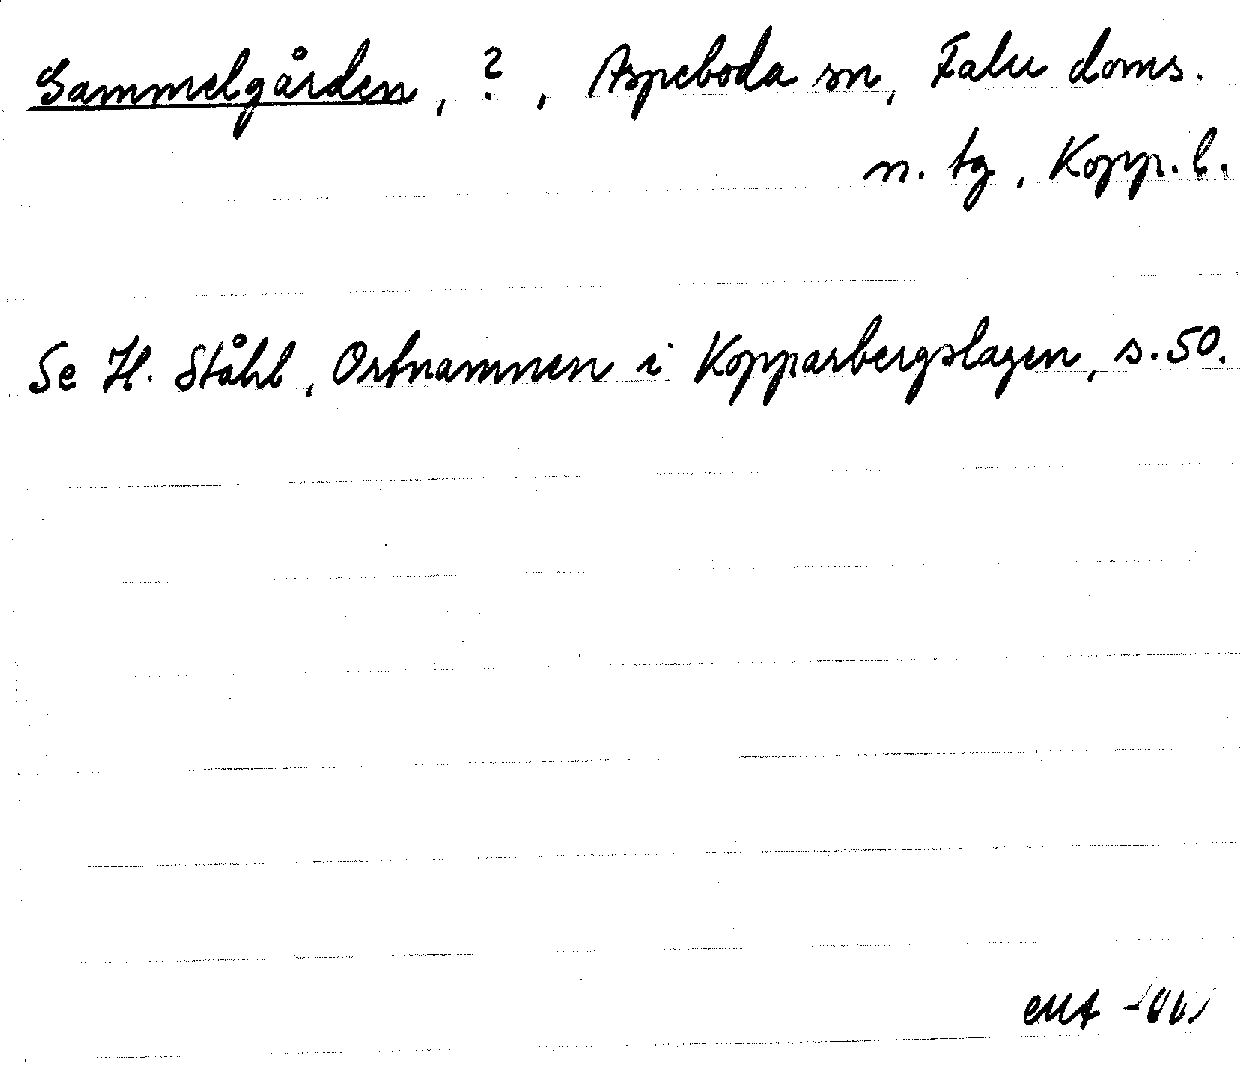 Gammelgården, ?, Aspeboda sn, Falu doms.
n. tg, Kopp.l.
Se H. Ståhl, Ortnamnen i Kopparbergslagen, s.50.